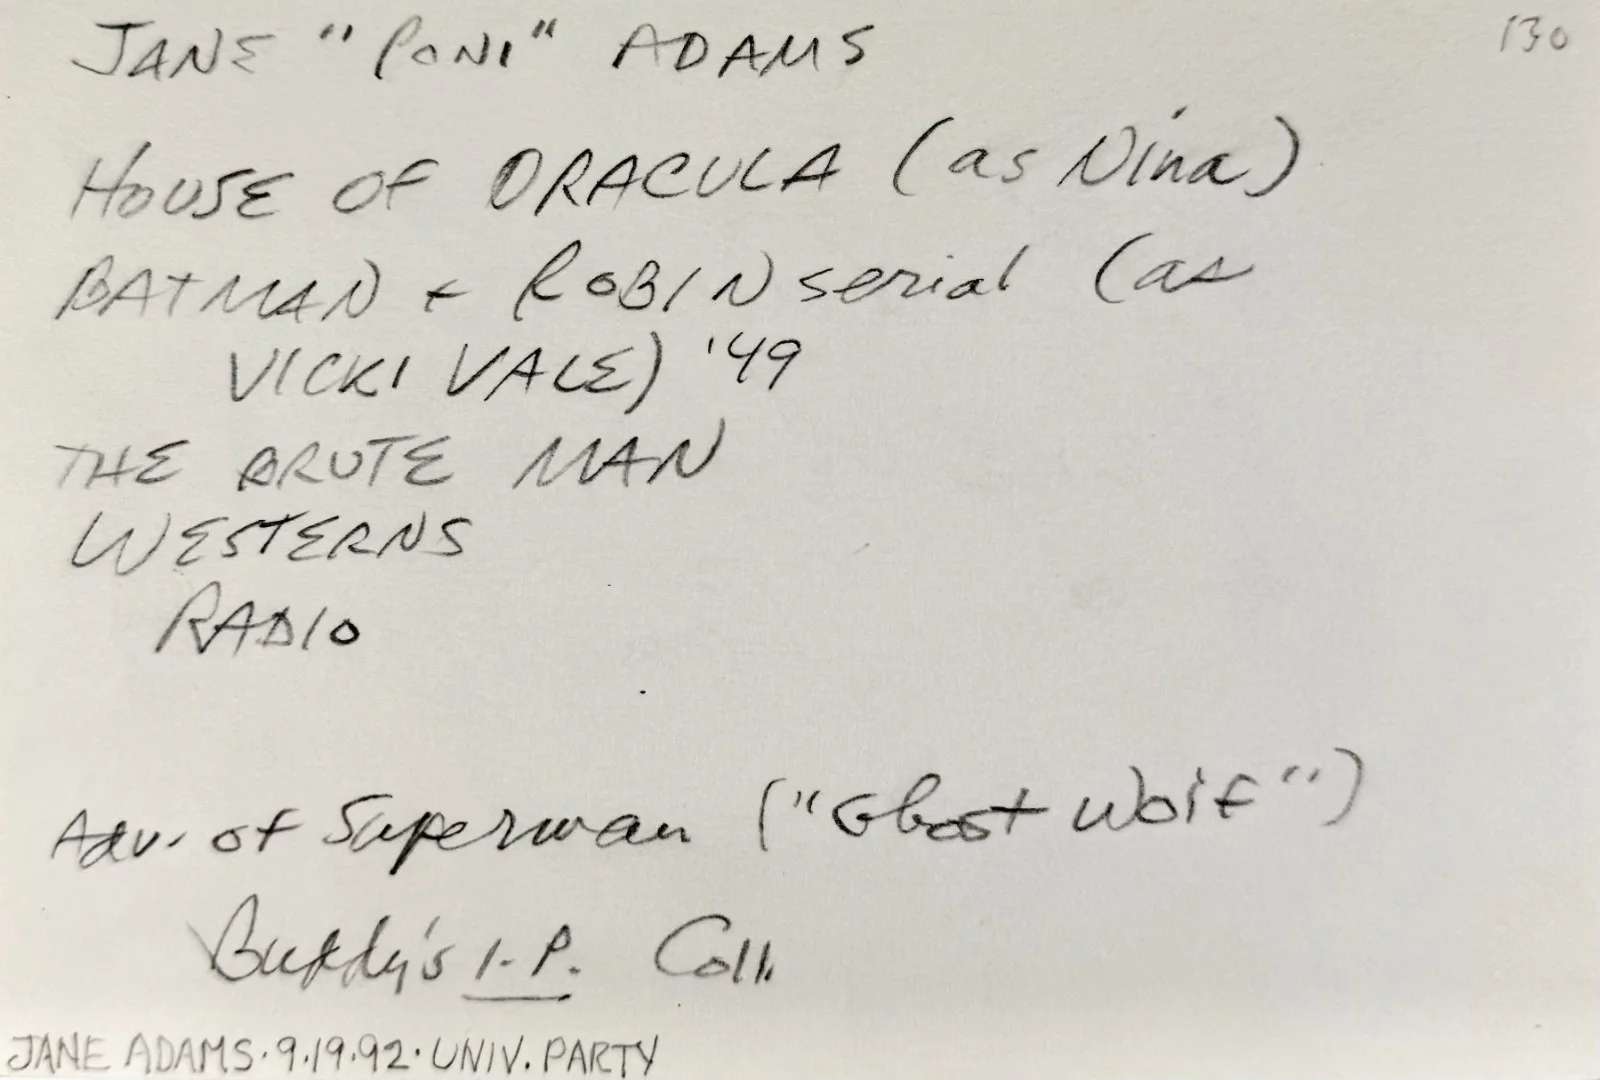 JANE "PONI" ADAMS 130
HOUSE OF DRACULA (as Nina)
BATMAN + ROBIN serial (as
VICKI VALE) '49
THE BRUTE MAN
WESTERNS
RADIO
Adv. of Superman ("Ghost Wolf")
Buddy's I.P. Coll.
JANE ADAMS · 9.19.92 · UNIV. PARTY